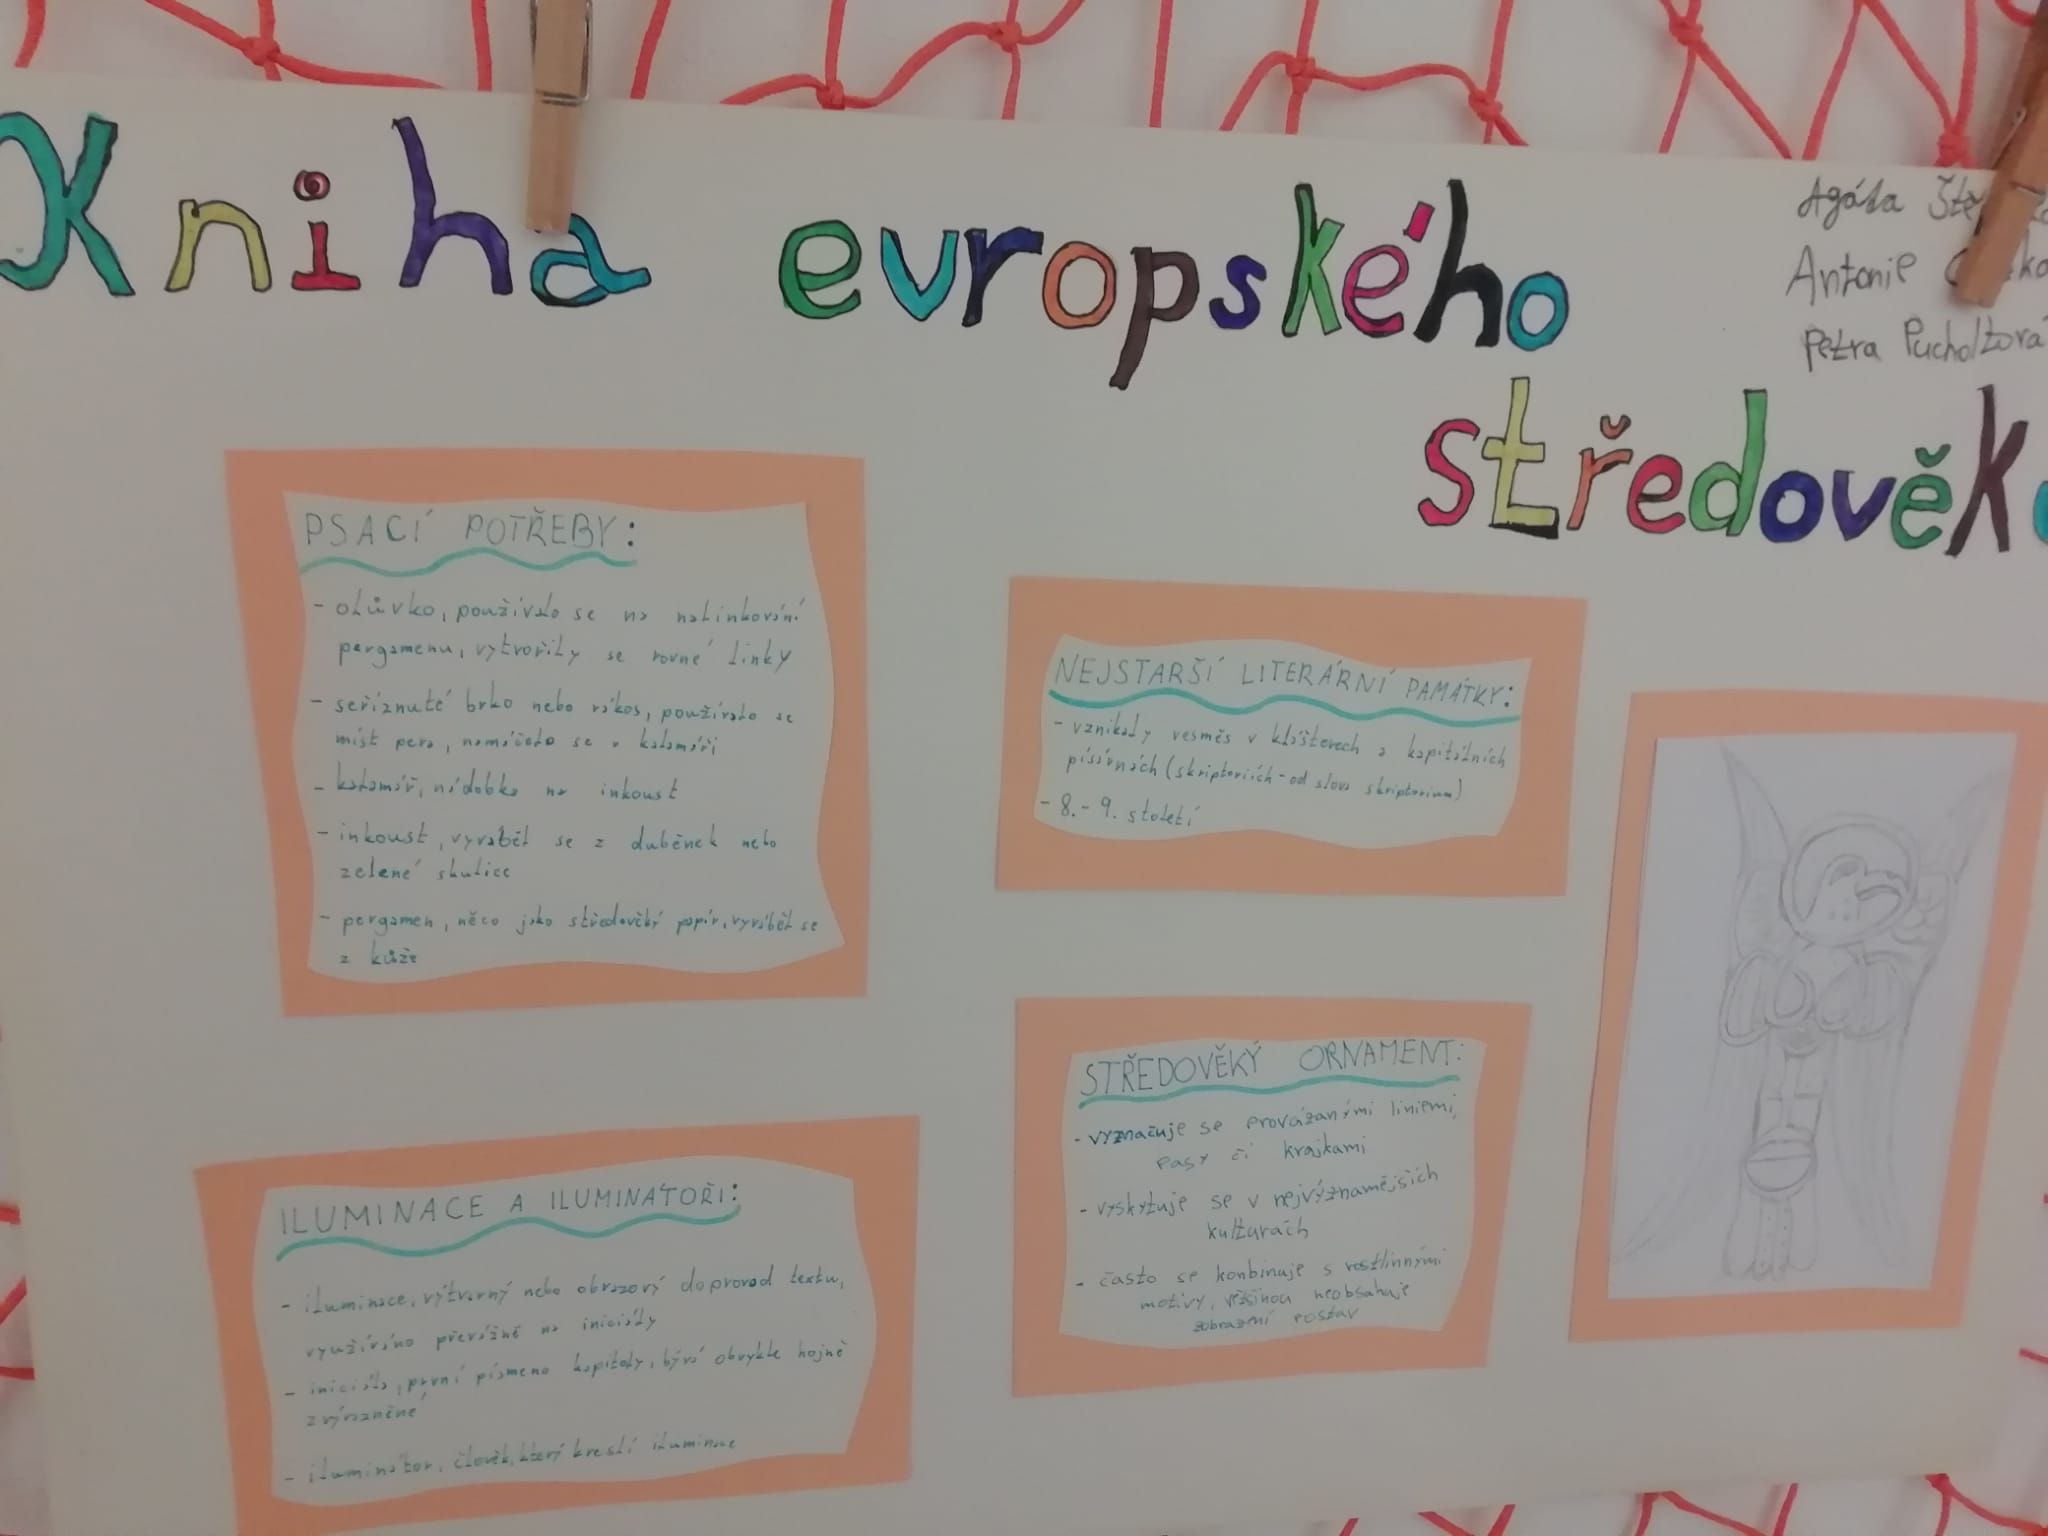 Kniha evropského
středověku
Agáta
Antonie
Petra Pucholtová
PSACÍ POTŘEBY:
- olůvko, používalo se na nalinkování
pergamenu, vytvořily se rovné linky
- seříznuté brko nebo rákos, používalo se
míst pera, namáčelo se v kalamáři
- kalamář, nádobka na inkoust
- inkoust, vyráběl se z duběnek nebo
zelené skalice
- pergamen, něco jako středověký papír, vyráběl se
z kůže
NEJSTARŠÍ LITERÁRNÍ PAMÁTKY:
- vznikaly vesměs v klášterech a kapitálních
písárnách (skriptoriích - od slova skriptorium)
- 8. - 9. století
STŘEDOVĚKÝ ORNAMENT:
- vyznačuje se provázanými liniemi,
pasy či krajkami
- vyskytuje se v nejvýznamějších
kulturách
- často se konbinuje s rostlinnými
motivy, většinou neobsahuje
zobrazní postav
ILUMINACE A ILUMINÁTOŘI:
- iluminace, výtvarný nebo obrazový doprovod textu,
využíváno převážně na iniciály
- iniciála, první písmeno kapitoly, bývá obvykle hojně
zvýrazněné
- iluminátor, člověk, který kreslí iluminace